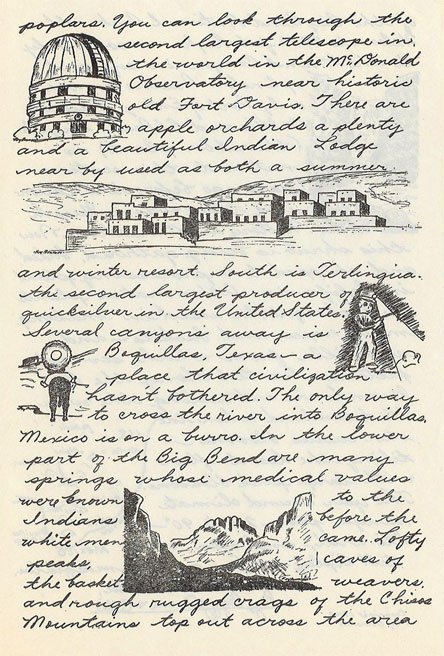 poplars. You can look through the
second largest telescope in
the world in the McDonald
Observatory near historic
old Fort Davis. There are
apple orchards a plenty
and a beautiful Indian Lodge
near by used as both a summer
and winter resort. South is Terlingua.
the second largest producer of
quicksilver in the United States.
Several canyons away is
Boquillas, Texas — a
place that civilization
hasn't bothered. The only way
to cross the river into Boquillas,
Mexico is on a burro. In the lower
part of the Big Bend are many
springs whose medical values
were known to the
Indians before the
white men came. Lofty
peaks, caves of
the basket- weavers,
and rough rugged crags of the Chisos
Mountains top out across the area